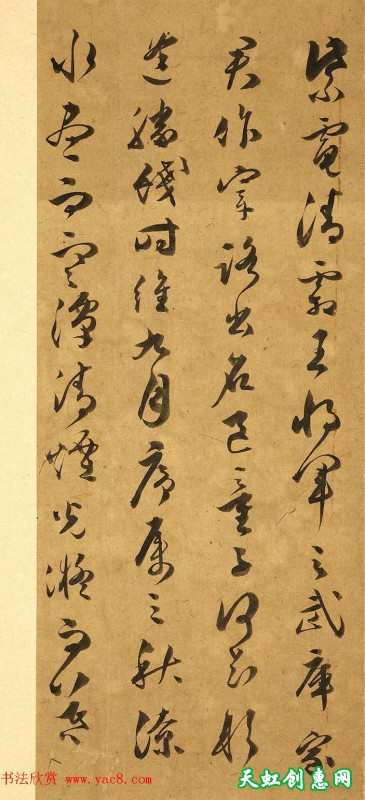 紫電清霜王將軍之武庫家
君作宰路出名區童子何知躬
逢勝餞時維九月序屬三秋潦
水盡而寒潭清煙光凝而暮
书法欣赏 www.yac8.com
天虹创惠网